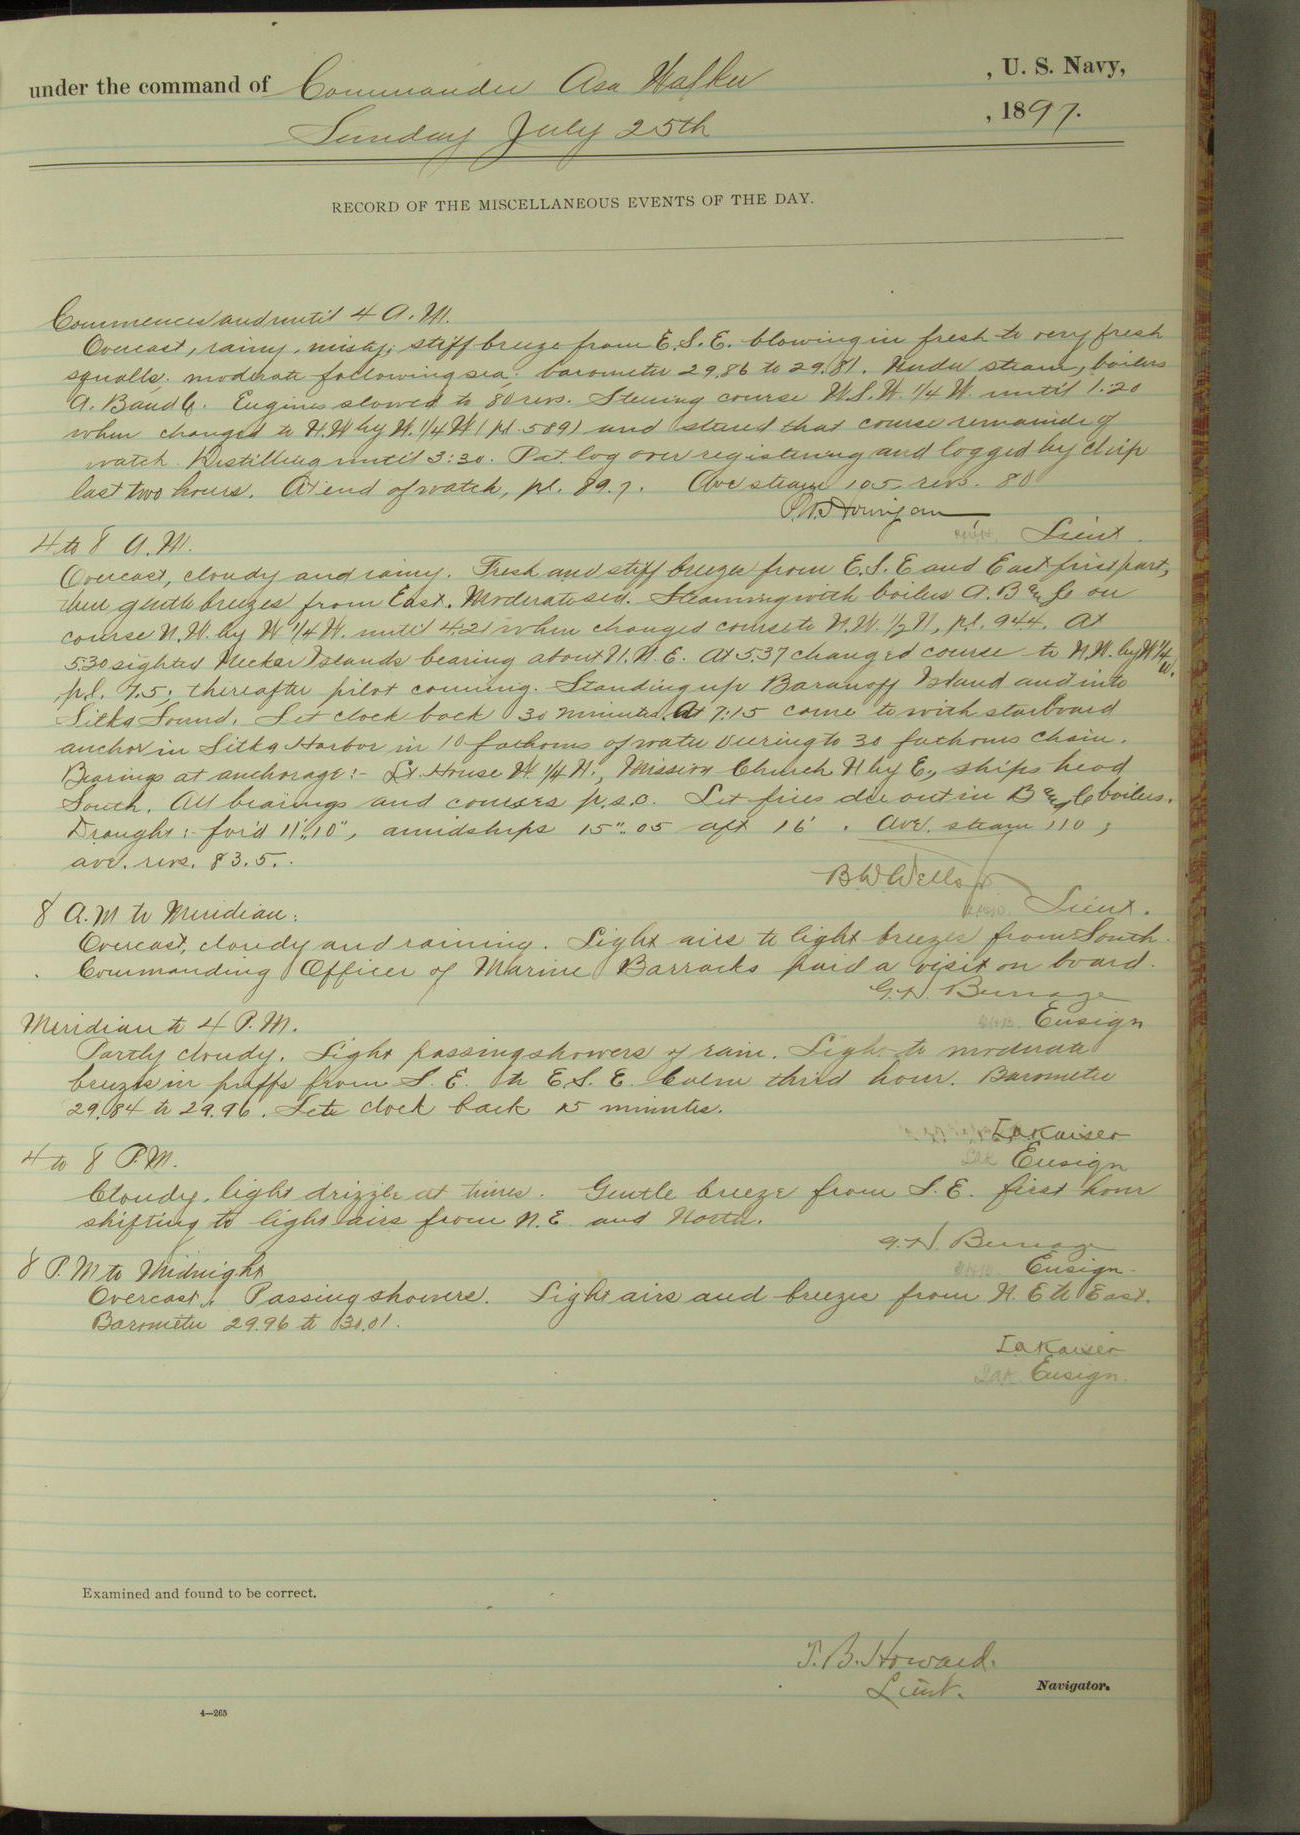 under the command of Commander Asa Walker , U. S. Navy,
Sunday July 25th , 1897.
RECORD OF THE MISCELLANEOUS EVENTS OF THE DAY.
Commences and until 4 A.M.
Overcast, rainy, misty; stiff breeze from E.S.E. blowing in fresh to very fresh
squalls. moderate following sea; barometer 29.86 to 29.81. Under steam, boilers
A. B and C. Engines slowed to 80 revs. Steering course W.S.W. 1/4 W. until 1:20
when changed to N.W by W. 1/4 W (pl. 589) and steered that course remainder of
watch. Distilling until 3:30. Pat. log over registering and logged by chip
last two hours. At end of watch, pl. 89.7. Ave steam 105 revs. 80
P.W. Hourigan
Lieut.
4 to 8 A.M.
Overcast, cloudy and rainy. Fresh and stiff breezes from E.S.E and East first part,
then gentle breezes from East. Moderate sea. Steaming with boilers A. B and C on
course N.W. by W 1/4 W. until 4:21 when changed course to N.W. 1/2 N, pl. 94.4. At
5:30 sighted Necker Islands bearing about N.N.E. At 5.37 changed course to N.W. by W 1/4 W.
pl. 7.5; thereafter pilot conning. Standing up Baranoff Island and into
Sitka Sound. Set clock back 30 minutes. At 7:15 came to with starboard
anchor in Sitka Harbor in 10 fathoms of water veering to 30 fathoms chain.
Bearings at anchorage:- Lt. House W. 1/4 N., Mission Church N by E., ships head
South. All bearings and courses p.s.c. Let fires die out in B and C boilers.
Draught:- for'd 11'.10", amidships 15".05 aft 16'. Ave. steam 110;
ave. revs. 83.5.
B.W. Wells Jr.
Lieut.
8 A.M to Meridian:
Overcast, cloudy and raining. Light airs to light breezes from South.
Commanding Officer of Marine Barracks paid a visit on board.
G.N. Burrage
Ensign
Meridian to 4 P.M.
Partly cloudy. Light passing showers of rain. Light to moderate
breezes in puffs from S.E. to E.S.E. Calm third hour. Barometer
29.84 to 29.96. Set clock back 15 minutes.
L.A. Kaiser
Ensign
4 to 8 P.M.
Cloudy, light drizzle at times. Gentle breeze from S.E. first hour
shifting to light airs from N.E and North.
G.N. Burrage
Ensign.
8 P.M to Midnight
Overcast. Passing showers. Light airs and breezes from N.E to East.
Barometer 29.96 to 30.01.
L.A. Kaiser
Ensign.
Examined and found to be correct.
T.B. Howard.
Lieut. Navigator.
4—265